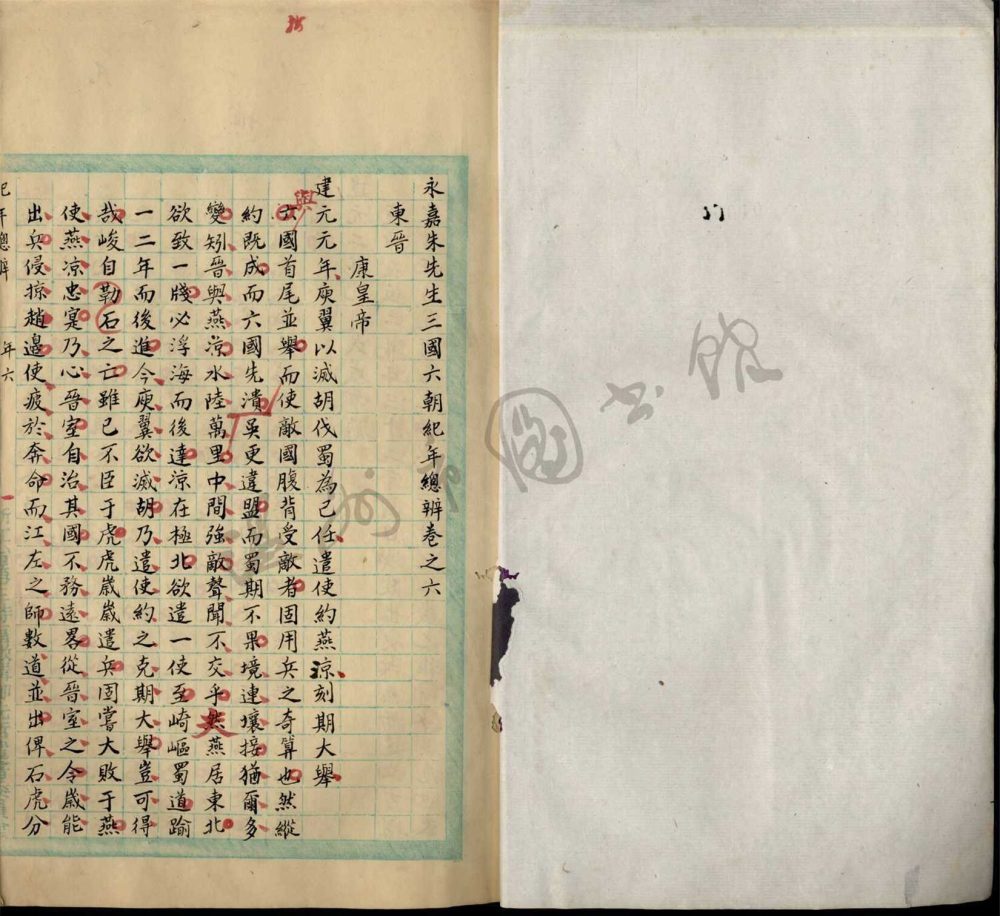 永嘉朱先生三國六朝紀年總辨卷之六
東晉
康皇帝
建元元年庾翼以滅胡伐蜀為己任遣使約燕涼刻期大舉
與
六國首尾並舉而使敵國腹背受敵者固用兵之奇算也然縱
約既成而六國先潰吳更違盟而蜀期不果境連壤接猶爾多
變矧晉與燕涼水陸萬里中間強敵聲聞不交乎然燕居東北
欲致一牋必浮海而後達涼在極北欲遣一使至崎嶇蜀道踰
一二年而後進今庾翼欲滅胡乃遣使約之克期大舉豈可得
哉峻自勒石之亡雖已不臣于虎虎歲歲遣兵固嘗大敗于燕
使燕涼忠寔乃心晉室自治其國不務遠畧從晉室之令歲能
出兵侵掠趙邊使疲於奔命而江左之師數道並出俾石虎分